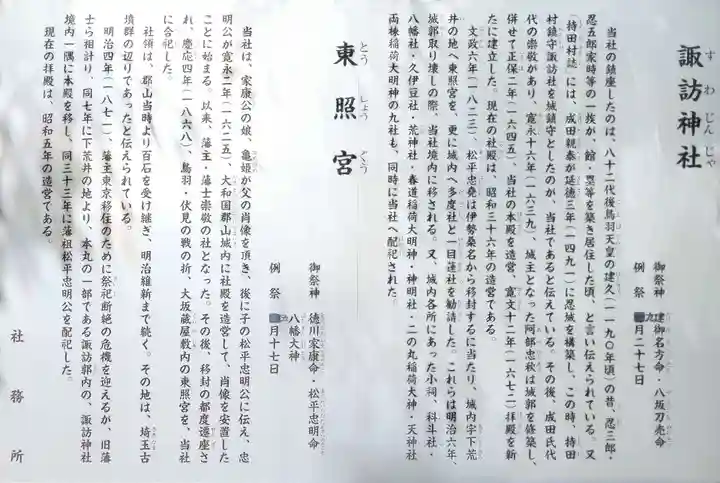 諏訪神社
すわじんじゃ
御祭神 建御名方命・八坂刀売命
例祭 九月二十七日
当社の鎮座したのは、八十二代後鳥羽天皇の建久(一一九〇年頃)の昔、忍三郎・
忍五郎家時等の一族が、館・塁等を築き居住した頃、と言い伝えられている。又
「持田村誌」には、成田親泰が延徳三年(一四九一)に忍城を構築し、この時、持田
村鎮守諏訪社を城鎮守としたのが、当社であると伝えている。その後、成田氏代
代の崇敬があり、寛永十六年(一六三九)、城主となった阿部忠秋は城郭を修築し、
併せて正保二年(一六四五)、当社の本殿を造営、寛文十二年(一六七二)拝殿を新
たに建立した。現在の社殿は、昭和三十六年の造営である。
文政六年(一八二三)、松平忠堯は伊勢桑名から移封するに当たり、城内字下荒
井の地へ東照宮を、更に城内へ多度社と一目蓮社を勧請した。これらは明治六年、
城郭取り壊しの際、当社境内に移される。又、城内各所にあった小祠、科斗社・
八幡社・久伊豆社・荒神社・春道稲荷大明神・神明社・二の丸稲荷大神・天神社
両棟稲荷大明神の九社も、同時に当社へ配祀された。
東照宮
とうしょうぐう
御祭神 徳川家康命・松平忠明命
八幡大神
例祭 月十七日
当社は、家康公の娘、亀姫が父の肖像を頂き、後に子の松平忠明公に伝え、忠
明公が寛永二年(一六二五)、大和国郡山城内に社殿を造営して、肖像を安置した
ことに始まる。以来、藩主・藩士崇敬の社となった。その後、移封の都度遷座さ
れ、慶応四年(一八六八)、鳥羽・伏見の戦の折、大坂蔵屋敷内の東照宮を、当社
に合祀した。
社領は、郡山当時より百石を受け継ぎ、明治維新まで続く。その地は、埼玉古
墳群の辺りであったと伝えられている。
明治四年(一八七一)、藩主東京移住のために祭祀断絶の危機を迎えるが、旧藩
士ら相計り、同七年に下荒井の地より、本丸の一部である諏訪郭内の、諏訪神社
境内一隅に本殿を移し、同三十三年に藩祖松平忠明公を配祀した。
現在の拝殿は、昭和五年の造営である。
社務所